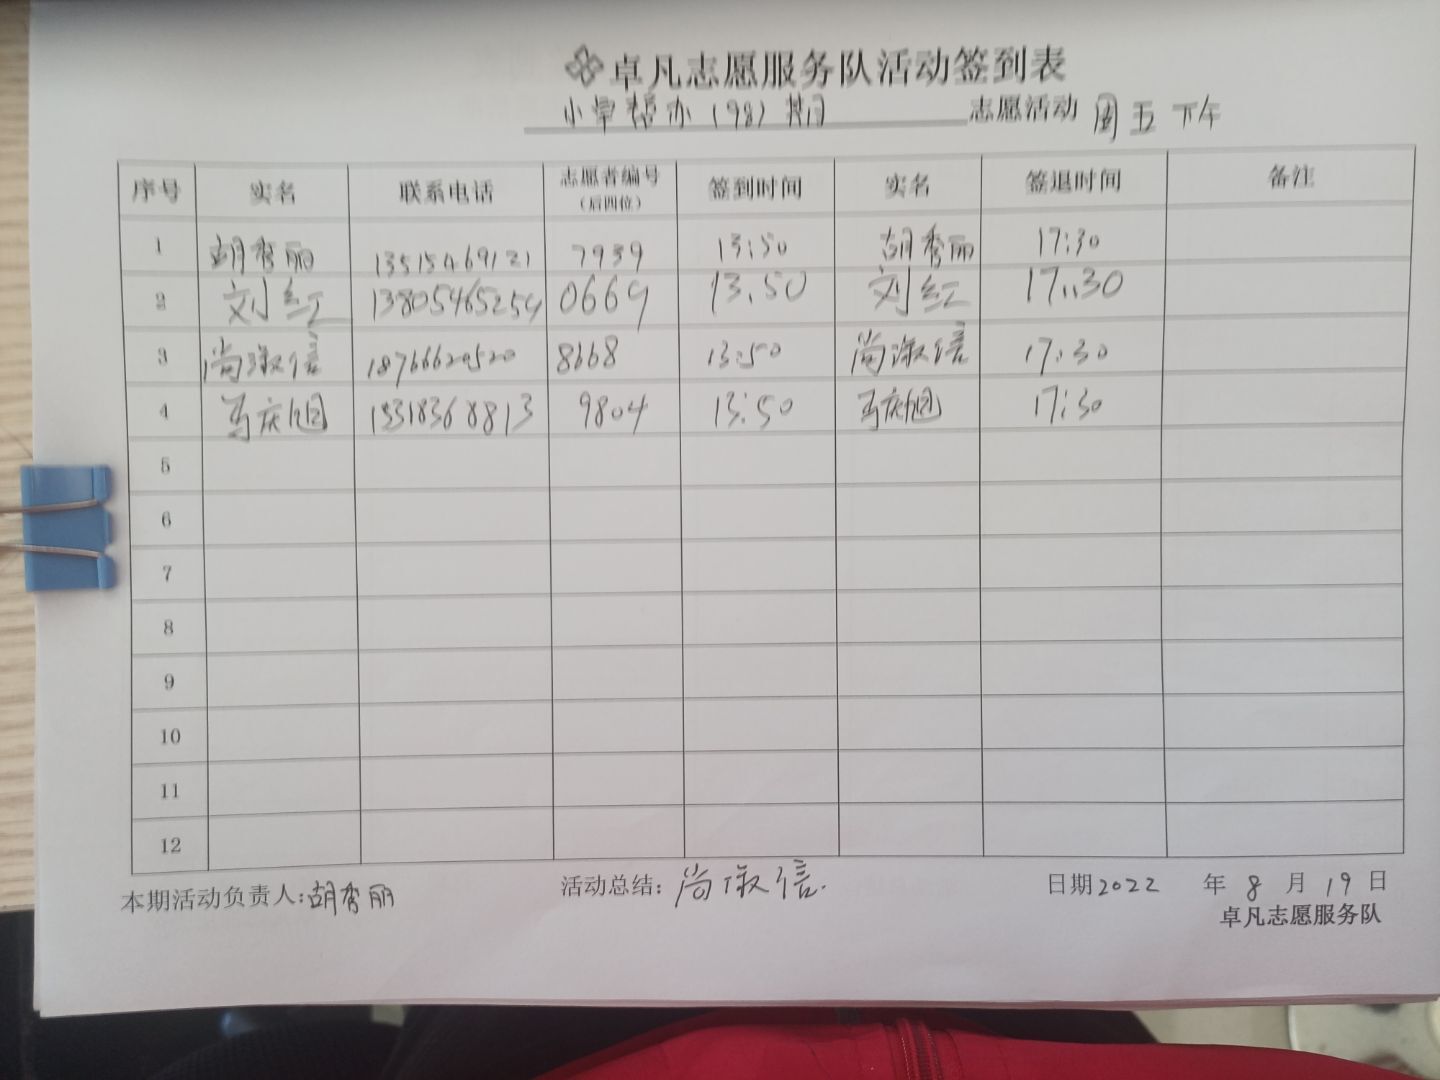 卓凡志愿服务队活动签到表
小草帮办（98）期 志愿活动 周五下午
序号 实名 联系电话 志愿者编号（后四位） 签到时间 实名 签退时间 备注
1 胡秀丽 13515469121 7939 13:50 胡秀丽 17:30
2 刘红 13805465254 0669 13.50 刘红 17:30
3 尚淑信 18766629520 8668 13:50 尚淑信 17:30
4 马庆旭 15318368813 9804 13:50 马庆旭 17:30
5
6
7
8
9
10
11
12
本期活动负责人:胡秀丽 活动总结: 尚淑信. 日期2022 年 8 月 19 日
卓凡志愿服务队